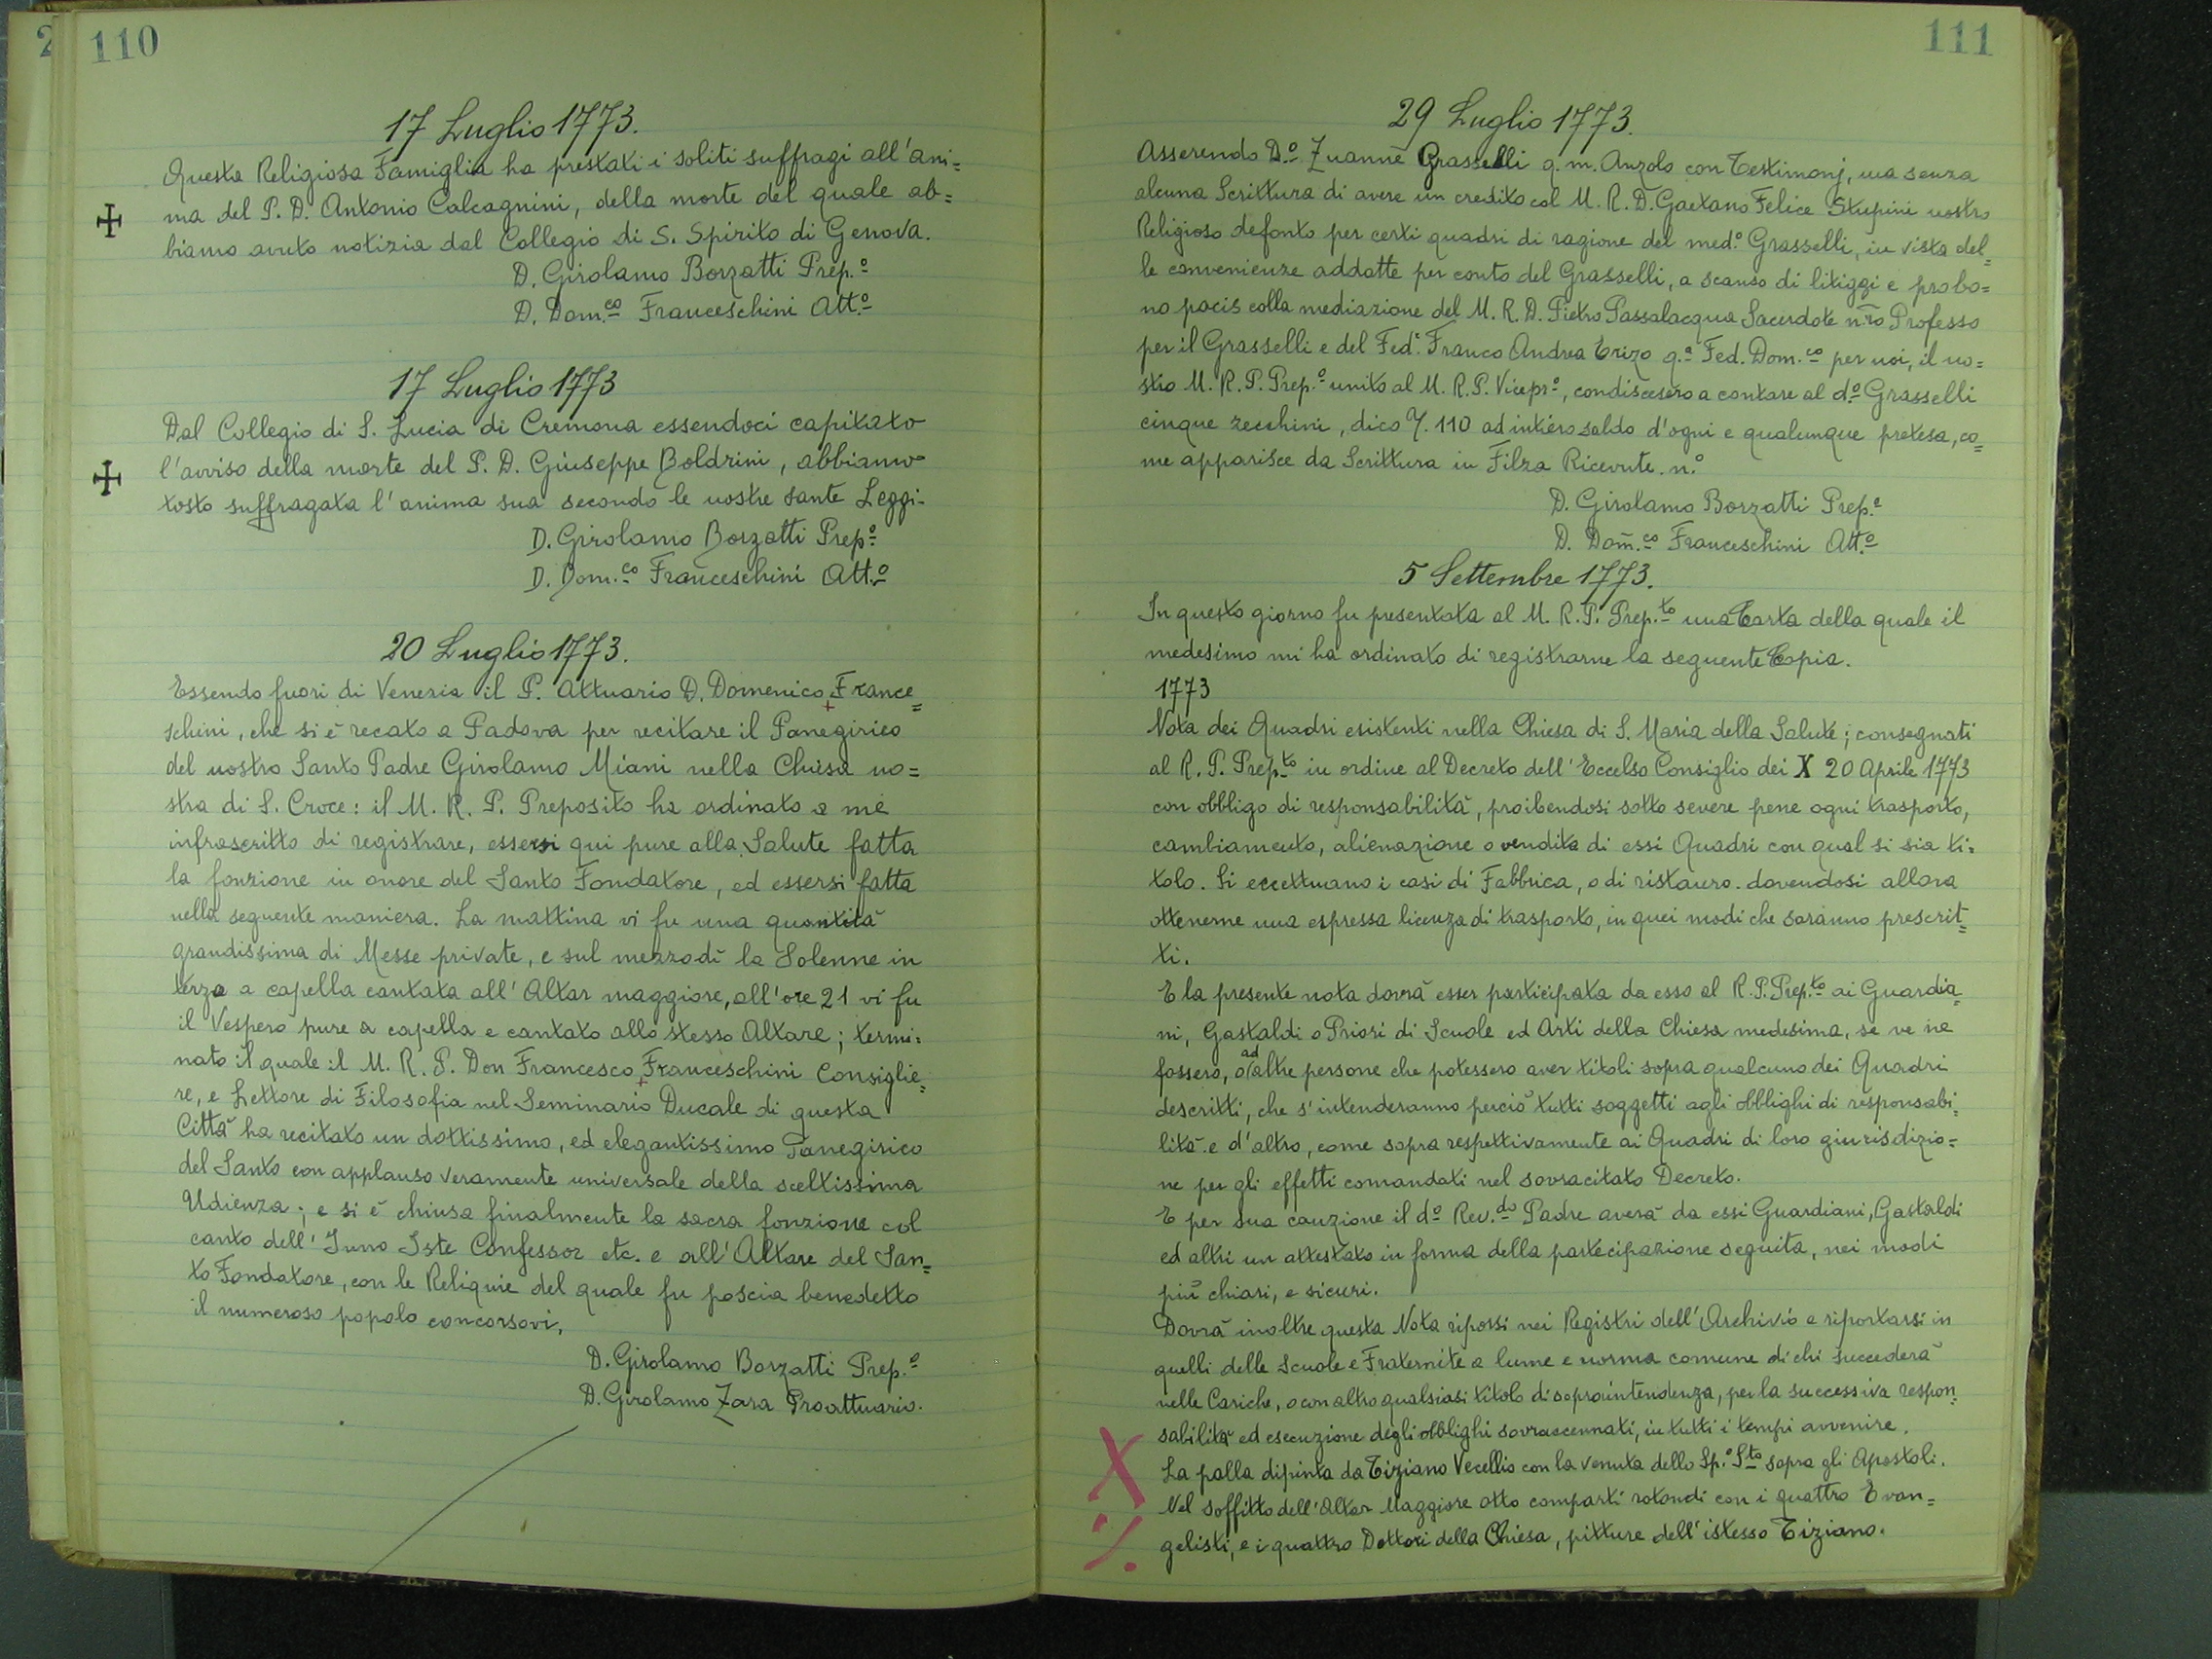 2
110
17 Luglio 1773.
Questa Religiosa Famiglia ha prestati i soliti suffragi all'ani=
ma del P. D. Antonio Calcagnini, della morte del quale ab=
biamo avuto notizia dal Collegio di S. Spirito di Genova.
D. Girolamo Borzatti Prep.º
D. Dom.co Franceschini Att.º
17 Luglio 1773
Dal Collegio di S. Lucia di Cremona essendoci capitato
l'avviso della morte del P. D. Giuseppe Boldrini, abbiamo
tosto suffragata l'anima sua secondo le nostre sante Leggi.
D. Girolamo Borzatti Prep.º
D. Dom.co Franceschini Att.º
20 Luglio 1773.
Essendo fuori di Venezia il P. Attuario D. Domenico France=
schini, che si è recato a Padova per recitare il Panegirico
del nostro Santo Padre Girolamo Miani nella Chiesa no=
stra di S. Croce: il M. R. P. Preposito ha ordinato a me
infrascritto di registrare, essersi qui pure alla Salute fatta
la fonzione in onore del Santo Fondatore, ed essersi fatta
nella seguente maniera. La mattina vi fu una quantità
grandissima di Messe private, e sul mezzodì la Solenne in
terzo a capella cantata all'Altar maggiore, all'ore 21 vi fu
il Vespero pure a capella e cantato allo stesso Altare; termi=
nato il quale il M. R. P. Don Francesco Franceschini Consiglie=
re, e Lettore di Filosofia nel Seminario Ducale di questa
Città ha recitato un dottissimo, ed elegantissimo Panegirico
del Santo con applauso veramente universale della sceltissima
Udienza; e si è chiusa finalmente la sacra fonzione col
canto dell'Inno Iste Confessor etc. e all'Altare del San=
to Fondatore, con le Reliquie del quale fu poscia benedetto
il numeroso popolo concorsovi.
D. Girolamo Borzatti Prep.º
D. Girolamo Zara Proattuario.
111
29 Luglio 1773.
Asserendo D.º Zuanne Grasselli q.m. Anzolo con Testimonj, ma senza
alcuna Scrittura di avere un credito col M. R. D. Gaetano Felice Stupini nostro
Religioso defonto per certi quadri di ragione del med.º Grasselli, in vista del=
le convenienze addatte per conto del Grasselli, a scanso di litiggi e probo=
no pacis colla mediazione del M. R. D. Pietro Passalacqua Sacerdote n.ro Professo
per il Grasselli e del Fed.e Franco Andrea Erizo q.a Fed. Dom.co per noi, il no=
stro M. R. P. Prep.º unito al M. R. P. Vicepr.º, condiscesero a contare al d.º Grasselli
cinque zecchini, dico 110 ad intiero saldo d'ogni e qualunque pretesa, co=
me apparisce da Scrittura in Filza Ricevute n.º
D. Girolamo Borzatti Prep.º
D. Dom.co Franceschini Att.º
5 Settembre 1773.
In questo giorno fu presentata al M. R. P. Prep.to una Carta della quale il
medesimo mi ha ordinato di registrarne la seguente Copia.
1773
Nota dei Quadri esistenti nella Chiesa di S. Maria della Salute; consegnati
al R. P. Prep.to in ordine al Decreto dell'Eccelso Consiglio dei X 20 Aprile 1773
con obbligo di responsabilità, proibendosi sotto severe pene ogni trasporto,
cambiamento, alienazione o vendita di essi Quadri con qual si sia ti=
tolo. Si eccettuano i casi di Fabbrica, o di ristauro. dovendosi allora
ottenerne una espressa licenza di trasporto, in quei modi che saranno prescrit=
ti.
E la presente nota dovrà esser participata da esso al R. P. Prep.to ai Guardia=
ni, Gastaldi o Priori di Scuole ed Arti della Chiesa medesima, se ve ne
fossero, o ad altre persone che potessero aver titoli sopra qualcuno dei Quadri
descritti, che s'intenderanno perciò tutti soggetti agli obblighi di responsabi=
lità e d'altro, come sopra respettivamente ai Quadri di loro giurisdizio=
ne per gli effetti comandati nel sovracitato Decreto.
E per sua cauzione il d.º Rev.do Padre averà da essi Guardiani, Gastaldi
ed altri un attestato in forma della partecipazione seguita, nei modi
più chiari, e sicuri.
Dovrà inoltre questa Nota riporsi nei Registri dell'Archivio e riportarsi in
quelli delle Scuole e Fraternite a lume e norma comune di chi succederà
nelle Cariche, o con altro qualsiasi titolo di sopraintendenza, per la successiva respon=
sabilità ed esecuzione degli obblighi sovraccennati, in tutti i tempi avvenire.
La palla dipinta da Tiziano Vecellio con la venuta dello Sp.º S.to sopra gli Apostoli.
Nel soffitto dell'Altar Maggiore otto comparti rotondi con i quattro Evan=
gelisti, e i quattro Dottori della Chiesa, pitture dell'istesso Tiziano.